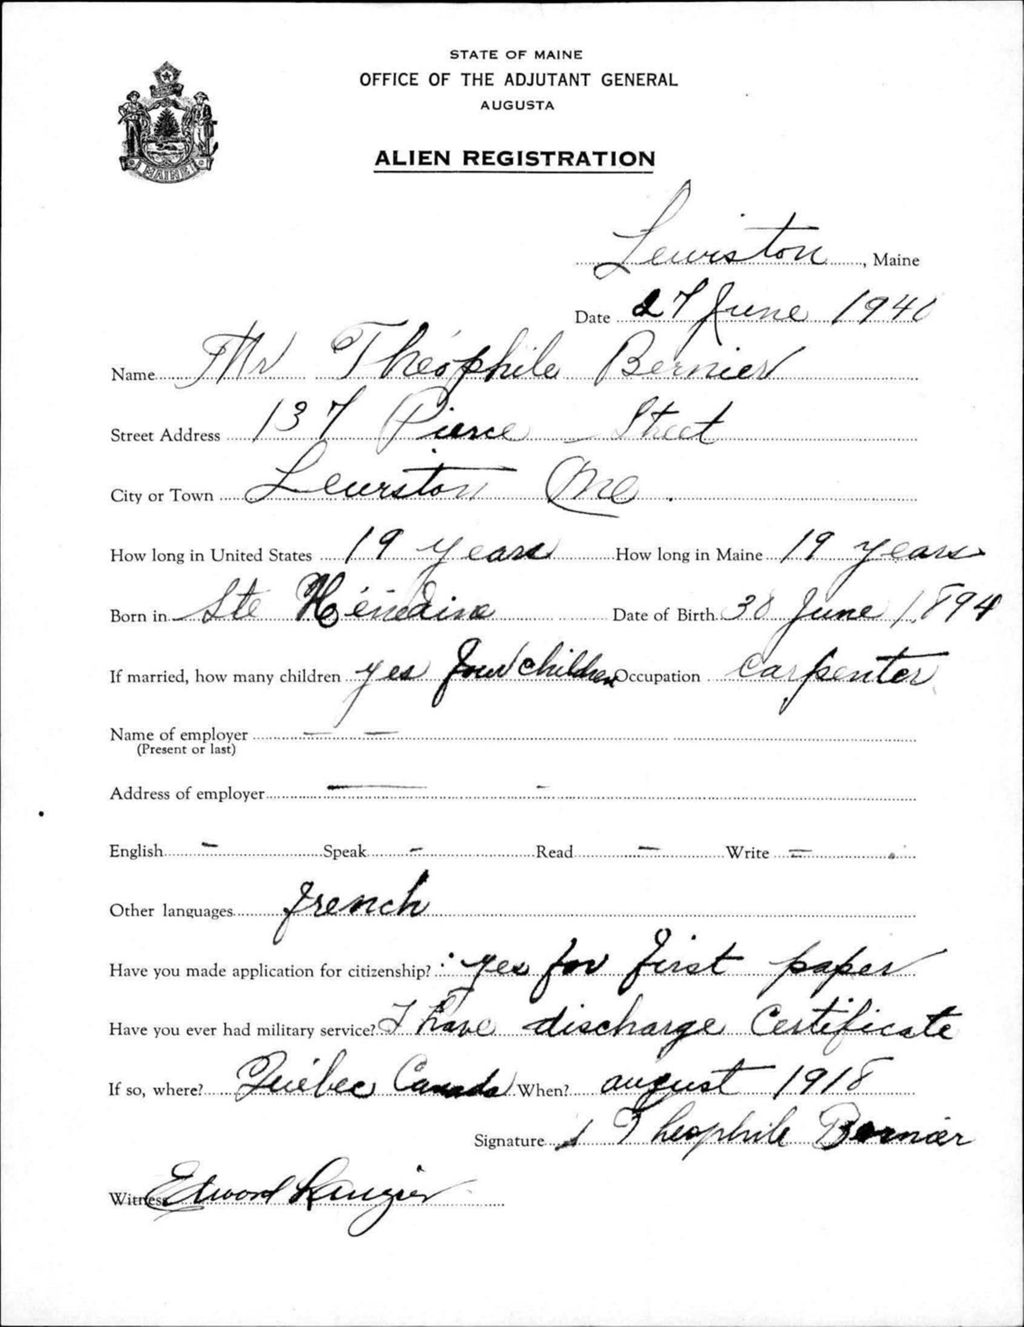 STATE OF MAINE
OFFICE OF THE ADJUTANT GENERAL
AUGUSTA
ALIEN REGISTRATION
MAINE
Lewiston, Maine
Date 27 June 1940
Name Mr Théophile Bernier
Street Address 137 Pierce Street
City or Town Lewiston Me.
How long in United States 19 years How long in Maine 19 years
Born in Ste Hénédine Date of Birth 30 June 1894
If married, how many children yes four children Occupation carpenter
Name of employer — —
(Present or last)
Address of employer — -
English - Speak - Read - Write =
Other languages french
Have you made application for citizenship? yes for first paper
Have you ever had military service? I have discharge Certificate
If so, where? Québec Canada When? august 1918
Signature Theophile Bernier
Witness Edward